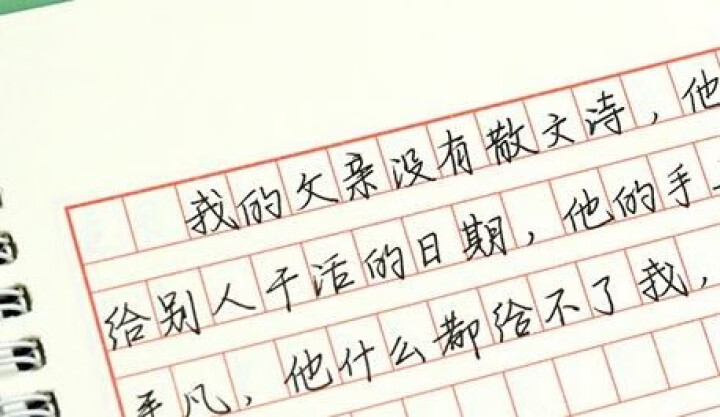 我的父亲没有散文诗，他
给别人干活的日期，他的手
平凡，他什么都给不了我，